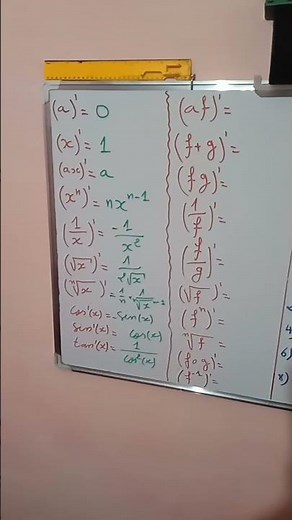 (a)'= 0
(x)'= 1
(ax)'= a
(xⁿ)'= nxⁿ⁻¹
(1/x)'= -1/x²
(√x)'= 1/2√x
(ⁿ√x)'= 1/n
cos'(x)=-sen(x)
sen'(x)= cos(x)
tan'(x)= 1/cos²(x)
(af)'=
(f+g)'=
(fg)'=
(1/f)'=
(f/g)'=
(√f)'=
(fⁿ)'=
ⁿ√f =
(fog)'=
(f⁻¹)'=
6)